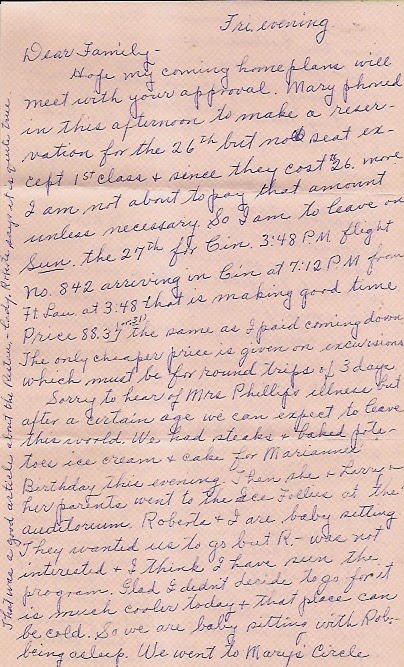 Fri. evening
Dear Family -
Hope my coming home plans will
meet with your approval. Mary phoned
in this afternoon to make a reser-
vation for the 26th but no seat ex-
cept 1st class & since they cost $26. more
I am not about to pay that amount
unless necessary. So I am to leave on
Sun. the 27th for Cin. 3:48 P.M flight
no. 842 arriving in Cin at 7:12 P.M from
Ft Lau at 3:48 that is making good time
Price 88.37 the same as I paid coming down
The only cheaper price is given on excursions
which must be for round trips of 3 days
Sorry to hear of Mrs Phillips illness but
after a certain age we can expect to leave
this world. We had steaks & baked pota-
toes ice cream & cake for Mariannes
Birthday this evening. Then she & Larry &
her parents went to the Ice Follies at the
auditorium. Roberta & I are baby sitting
They wanted us to go but R- was not
interested & I think I have seen the
program. Glad I didnt decide to go for it
is much cooler today & that place can
be cold. So we are baby sitting with Rob-
being asleep. We went to Mary's Circle
That was a good article about the - Lady. says it is quite true